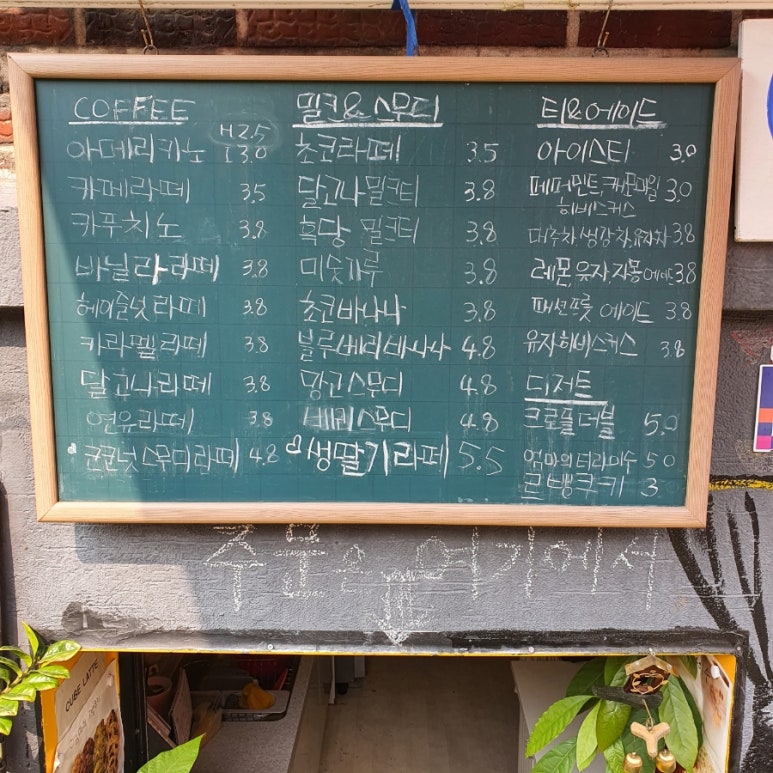 COFFEE
아메리카노 H2.5
I3.0
카페라떼 3.5
카푸치노 3.8
바닐라라떼 3.8
헤이즐넛라떼 3.8
카라멜라떼 3.8
달고나라떼 3.8
연유라떼 3.8
코코넛스무디라떼 4.8
밀크&스무디
초코라떼 3.5
달고나밀크티 3.8
흑당 밀크티 3.8
미숫가루 3.8
초코바나나 3.8
블루베리바나나 4.8
망고스무디 4.8
베리스무디 4.8
생딸기라떼 5.5
티&에이드
아이스티 3.0
페퍼민트, 캐모마일 3.0
히비스커스
대추차,생강차,유자차 3.8
레몬,유자,자몽에이드 3.8
패션프룻 에이드 3.8
유자히비스커스 3.8
디저트
크로플더블 5.0
엄마의티라미수 5.0
르뱅쿠키 3
주문은 여기에서
CUBE LATTE